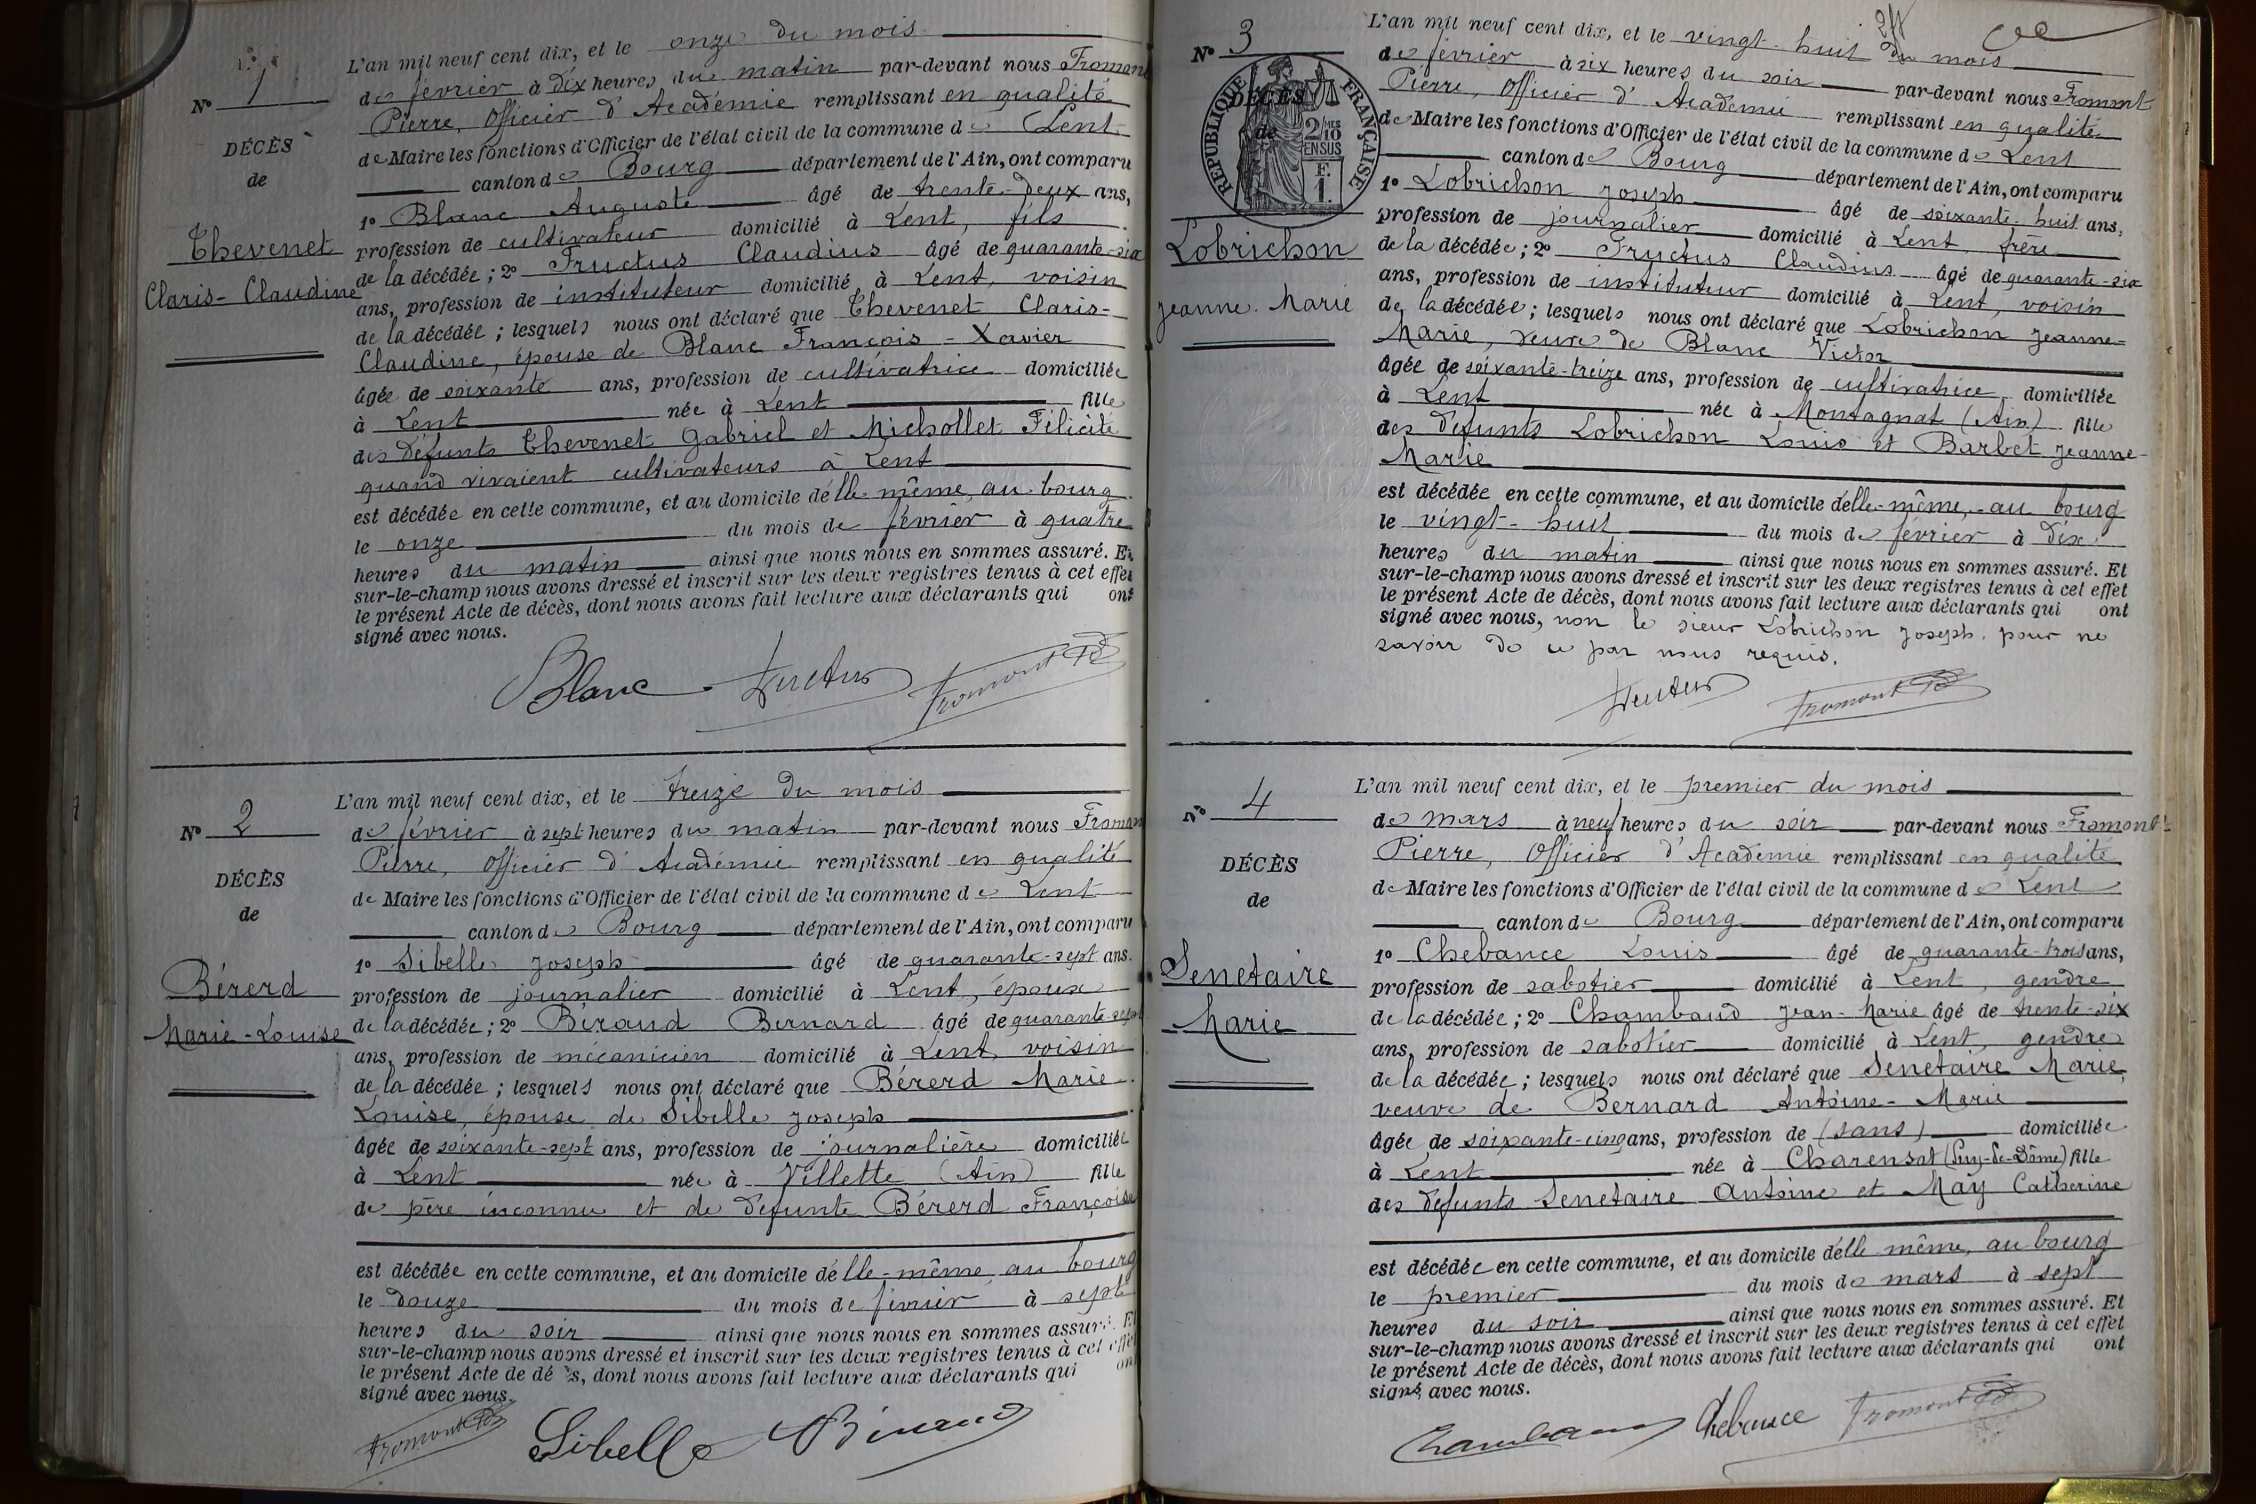 N° 1
DÉCÈS
de
Thevenet
Claris-Claudine
L'an mil neuf cent dix, et le onze du mois
de février à dix heures du matin par-devant nous Fromont
Pierre, Officier d'Académie remplissant en qualité
de Maire les fonctions d'Officier de l'état civil de la commune de Lent
canton de Bourg département de l'Ain, ont comparu
1° Blanc Auguste âgé de trente-deux ans,
profession de cultivateur domicilié à Lent, fils
de la décédée ; 2° Fructus Claudius âgé de quarante-six
ans, profession de instituteur domicilié à Lent, voisin
de la décédée ; lesquels nous ont déclaré que Thevenet Claris-
Claudine, épouse de Blanc François-Xavier
âgée de soixante ans, profession de cultivatrice domiciliée
à Lent née à Lent fille
des défunts Thevenet Gabriel et Michollet Félicité
quand vivaient cultivateurs à Lent
est décédée en cette commune, et au domicile d'elle-même, au bourg
le onze du mois de février à quatre
heures du matin ainsi que nous nous en sommes assuré. Et
sur-le-champ nous avons dressé et inscrit sur les deux registres tenus à cet effet
le présent Acte de décès, dont nous avons fait lecture aux déclarants qui ont
signé avec nous.
Blanc Fructus Fromont
N° 2
DÉCÈS
de
Bérerd
Marie-Louise
L'an mil neuf cent dix, et le treize du mois
de février à sept heures du matin par-devant nous Fromont
Pierre, Officier d'Académie remplissant en qualité
de Maire les fonctions d'Officier de l'état civil de la commune de Lent
canton de Bourg département de l'Ain, ont comparu
1° Sibelle Joseph âgé de quarante-sept ans.
profession de journalier domicilié à Lent, époux
de la décédée ; 2° Béraud Bernard âgé de quarante-sept
ans, profession de mécanicien domicilié à Lent, voisin
de la décédée ; lesquels nous ont déclaré que Bérerd Marie
Louise, épouse de Sibelle Joseph
âgée de soixante-sept ans, profession de journalière domiciliée
à Lent née à Villette (Ain) fille
de père inconnu et de défunte Bérerd Françoise
est décédée en cette commune, et au domicile d'elle-même, au bourg
le douze du mois de février à sept
heures du soir ainsi que nous nous en sommes assuré. Et
sur-le-champ nous avons dressé et inscrit sur les deux registres tenus à cet effet
le présent Acte de décès, dont nous avons fait lecture aux déclarants qui ont
signé avec nous.
Fromont Sibelle Béraud
N° 3
RÉPUBLIQUE FRANÇAISE
2/10 MES
EN SUS
F.
1.
DÉCÈS
de
Lobrichon
Jeanne-Marie
L'an mil neuf cent dix, et le vingt-huit du mois
de février à six heures du soir par-devant nous Fromont
Pierre, Officier d'Académie remplissant en qualité
de Maire les fonctions d'Officier de l'état civil de la commune de Lent
canton de Bourg département de l'Ain, ont comparu
1° Lobrichon Joseph âgé de soixante-huit ans,
profession de journalier domicilié à Lent, frère
de la décédée ; 2° Fructus Claudius âgé de quarante-six
ans, profession de instituteur domicilié à Lent, voisin
de la décédée ; lesquels nous ont déclaré que Lobrichon Jeanne-
Marie, veuve de Blanc Victor
âgée de soixante-treize ans, profession de cultivatrice domiciliée
à Lent née à Montagnat (Ain) fille
des défunts Lobrichon Louis et Barbet Jeanne-
Marie
est décédée en cette commune, et au domicile d'elle-même, au bourg
le vingt-huit du mois de février à dix
heures du matin ainsi que nous nous en sommes assuré. Et
sur-le-champ nous avons dressé et inscrit sur les deux registres tenus à cet effet
le présent Acte de décès, dont nous avons fait lecture aux déclarants qui ont
signé avec nous, non le sieur Lobrichon Joseph pour ne
savoir de ce par nous requis.
Fructus Fromont
N° 4
DÉCÈS
de
Senetaire
Marie
L'an mil neuf cent dix, et le premier du mois
de mars à neuf heures du soir par-devant nous Fromont
Pierre, Officier d'Académie remplissant en qualité
de Maire les fonctions d'Officier de l'état civil de la commune de Lent
canton de Bourg département de l'Ain, ont comparu
1° Chebance Louis âgé de quarante-trois ans,
profession de sabotier domicilié à Lent, gendre
de la décédée ; 2° Chambaud Jean-Marie âgé de trente-six
ans, profession de sabotier domicilié à Lent, gendre
de la décédée ; lesquels nous ont déclaré que Senetaire Marie,
veuve de Bernard Antoine-Marie
âgée de soixante-cinq ans, profession de (sans) domiciliée
à Lent née à Charensat (Puy-de-Dôme) fille
des défunts Senetaire Antoine et May Catherine
est décédée en cette commune, et au domicile d'elle-même, au bourg
le premier du mois de mars à sept
heures du soir ainsi que nous nous en sommes assuré. Et
sur-le-champ nous avons dressé et inscrit sur les deux registres tenus à cet effet
le présent Acte de décès, dont nous avons fait lecture aux déclarants qui ont
signé avec nous.
Chambaud Chebance Fromont